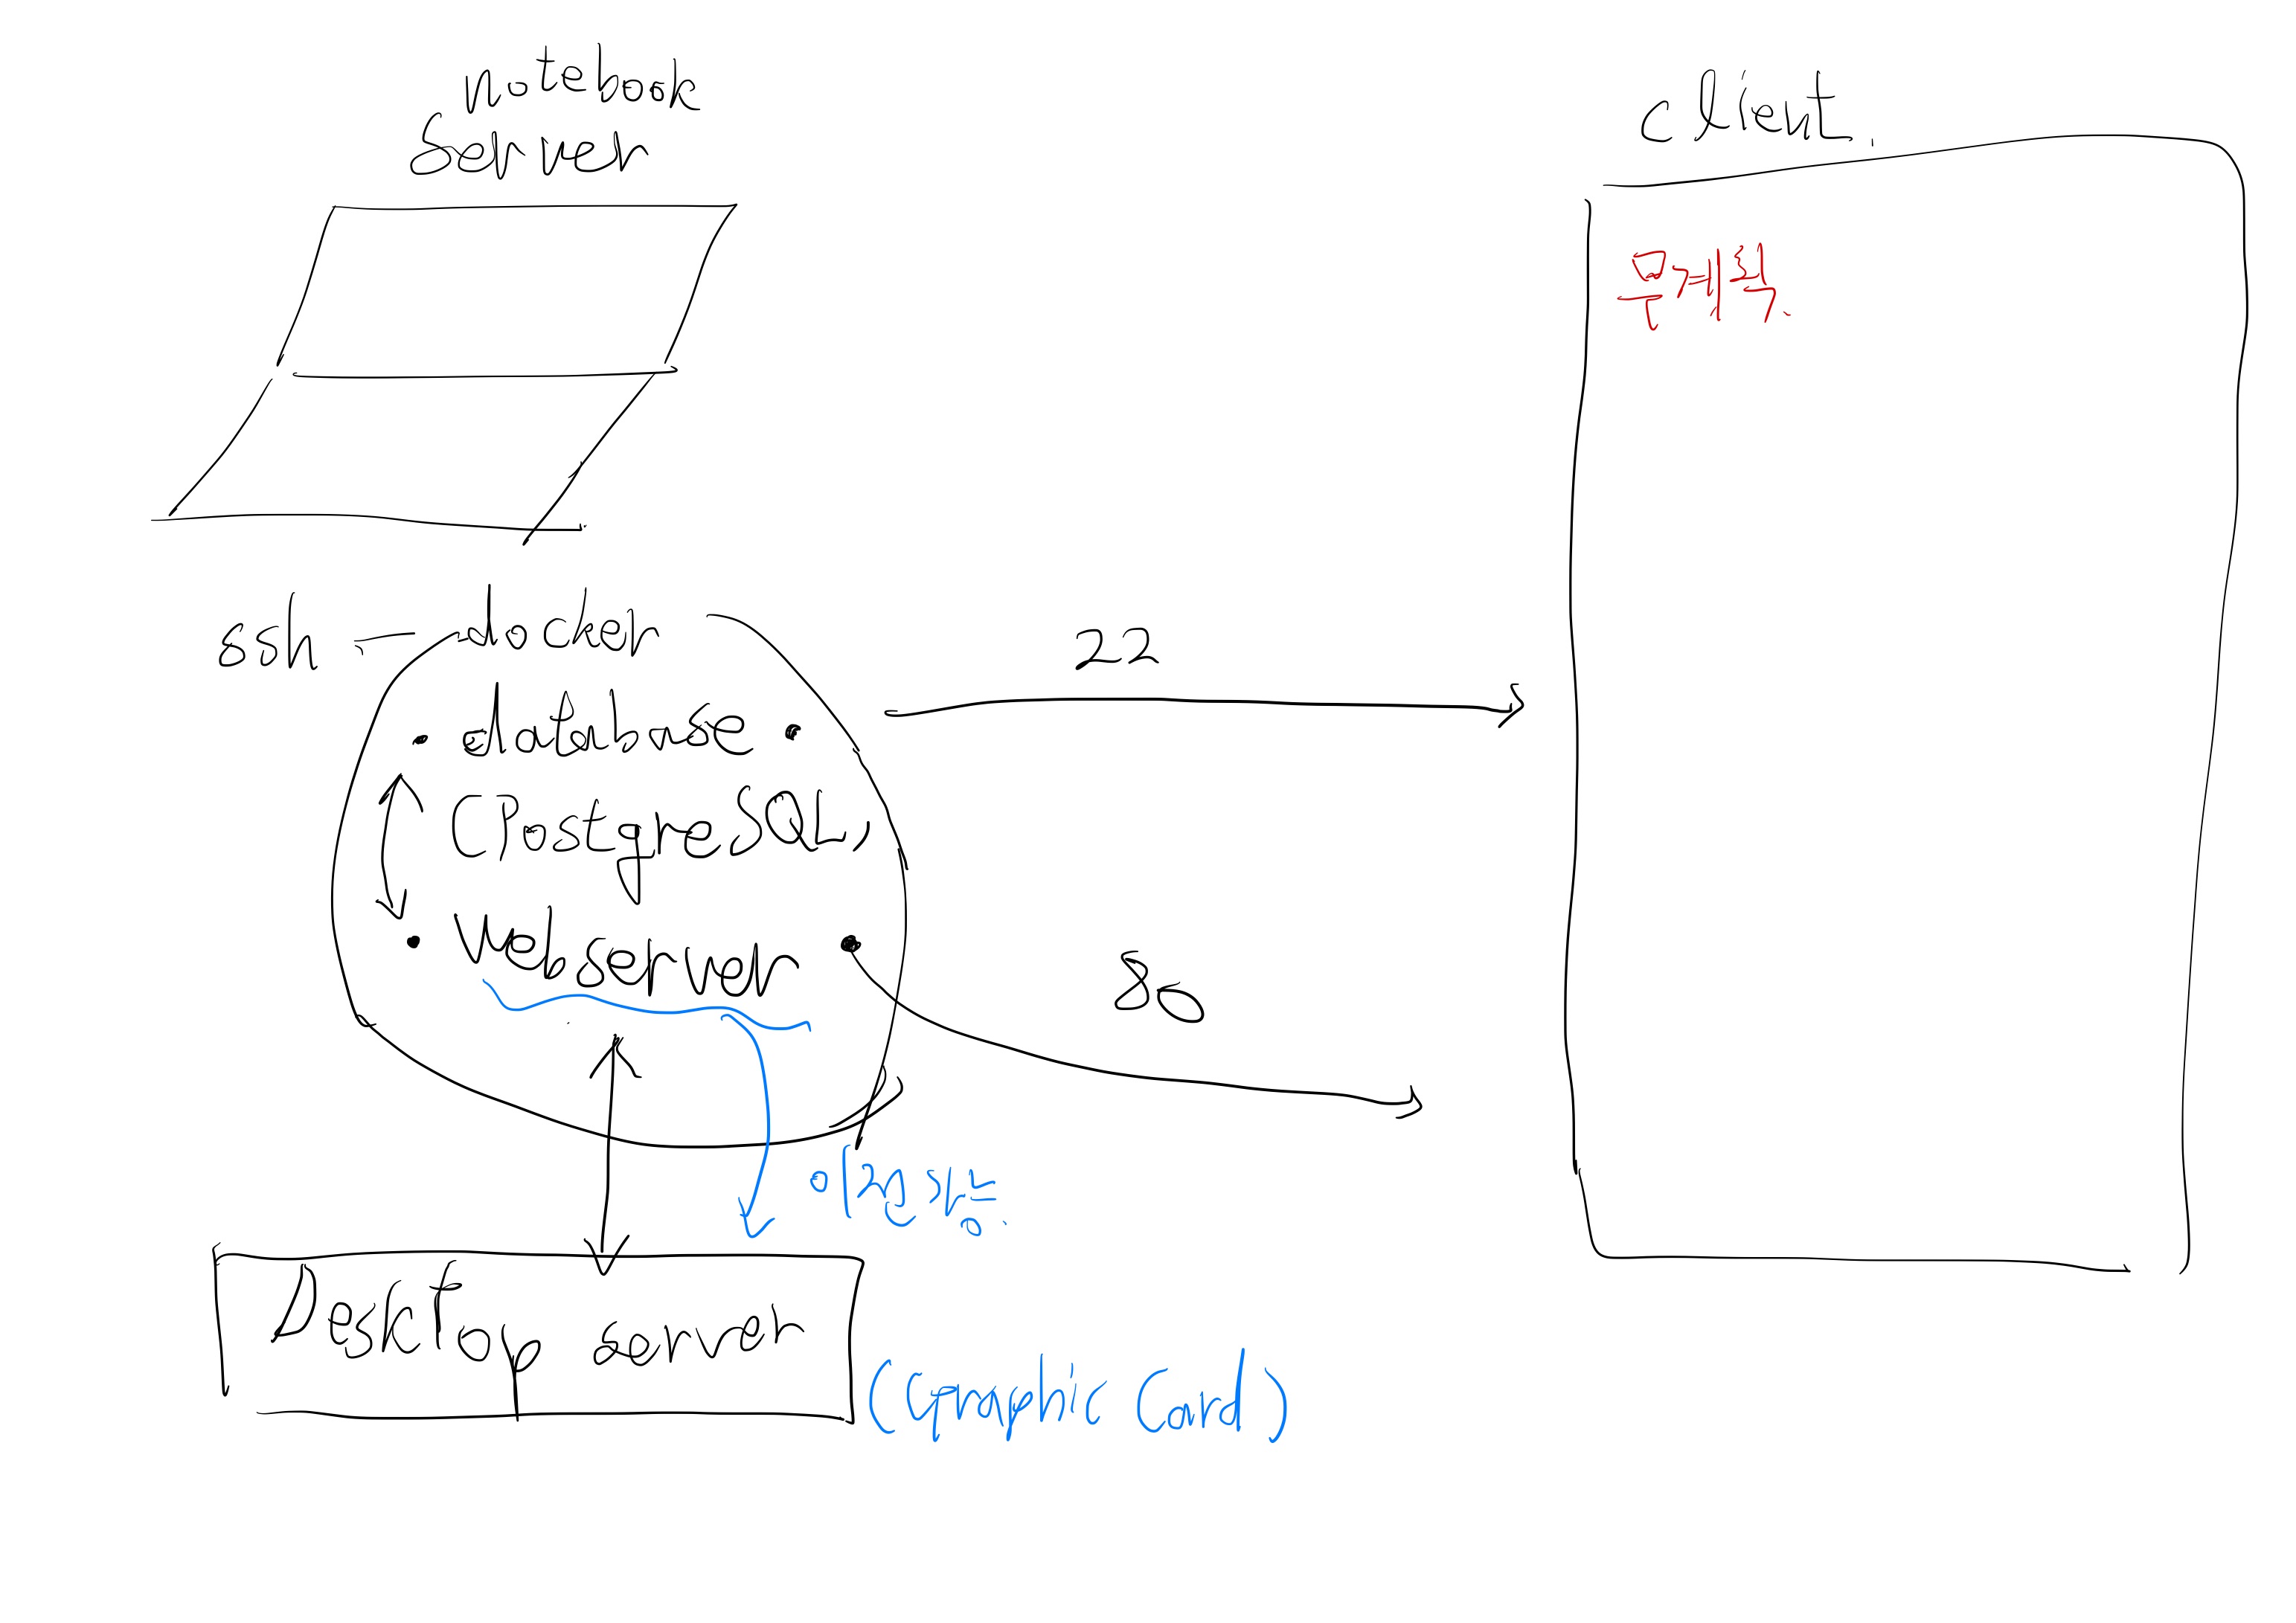 notebook
Server
client.
무계획.
ssh - docker
22
· database ·
(PostgreSQL)
· Web server ·
80
이전가능.
Desktop server
(Graphic Card)